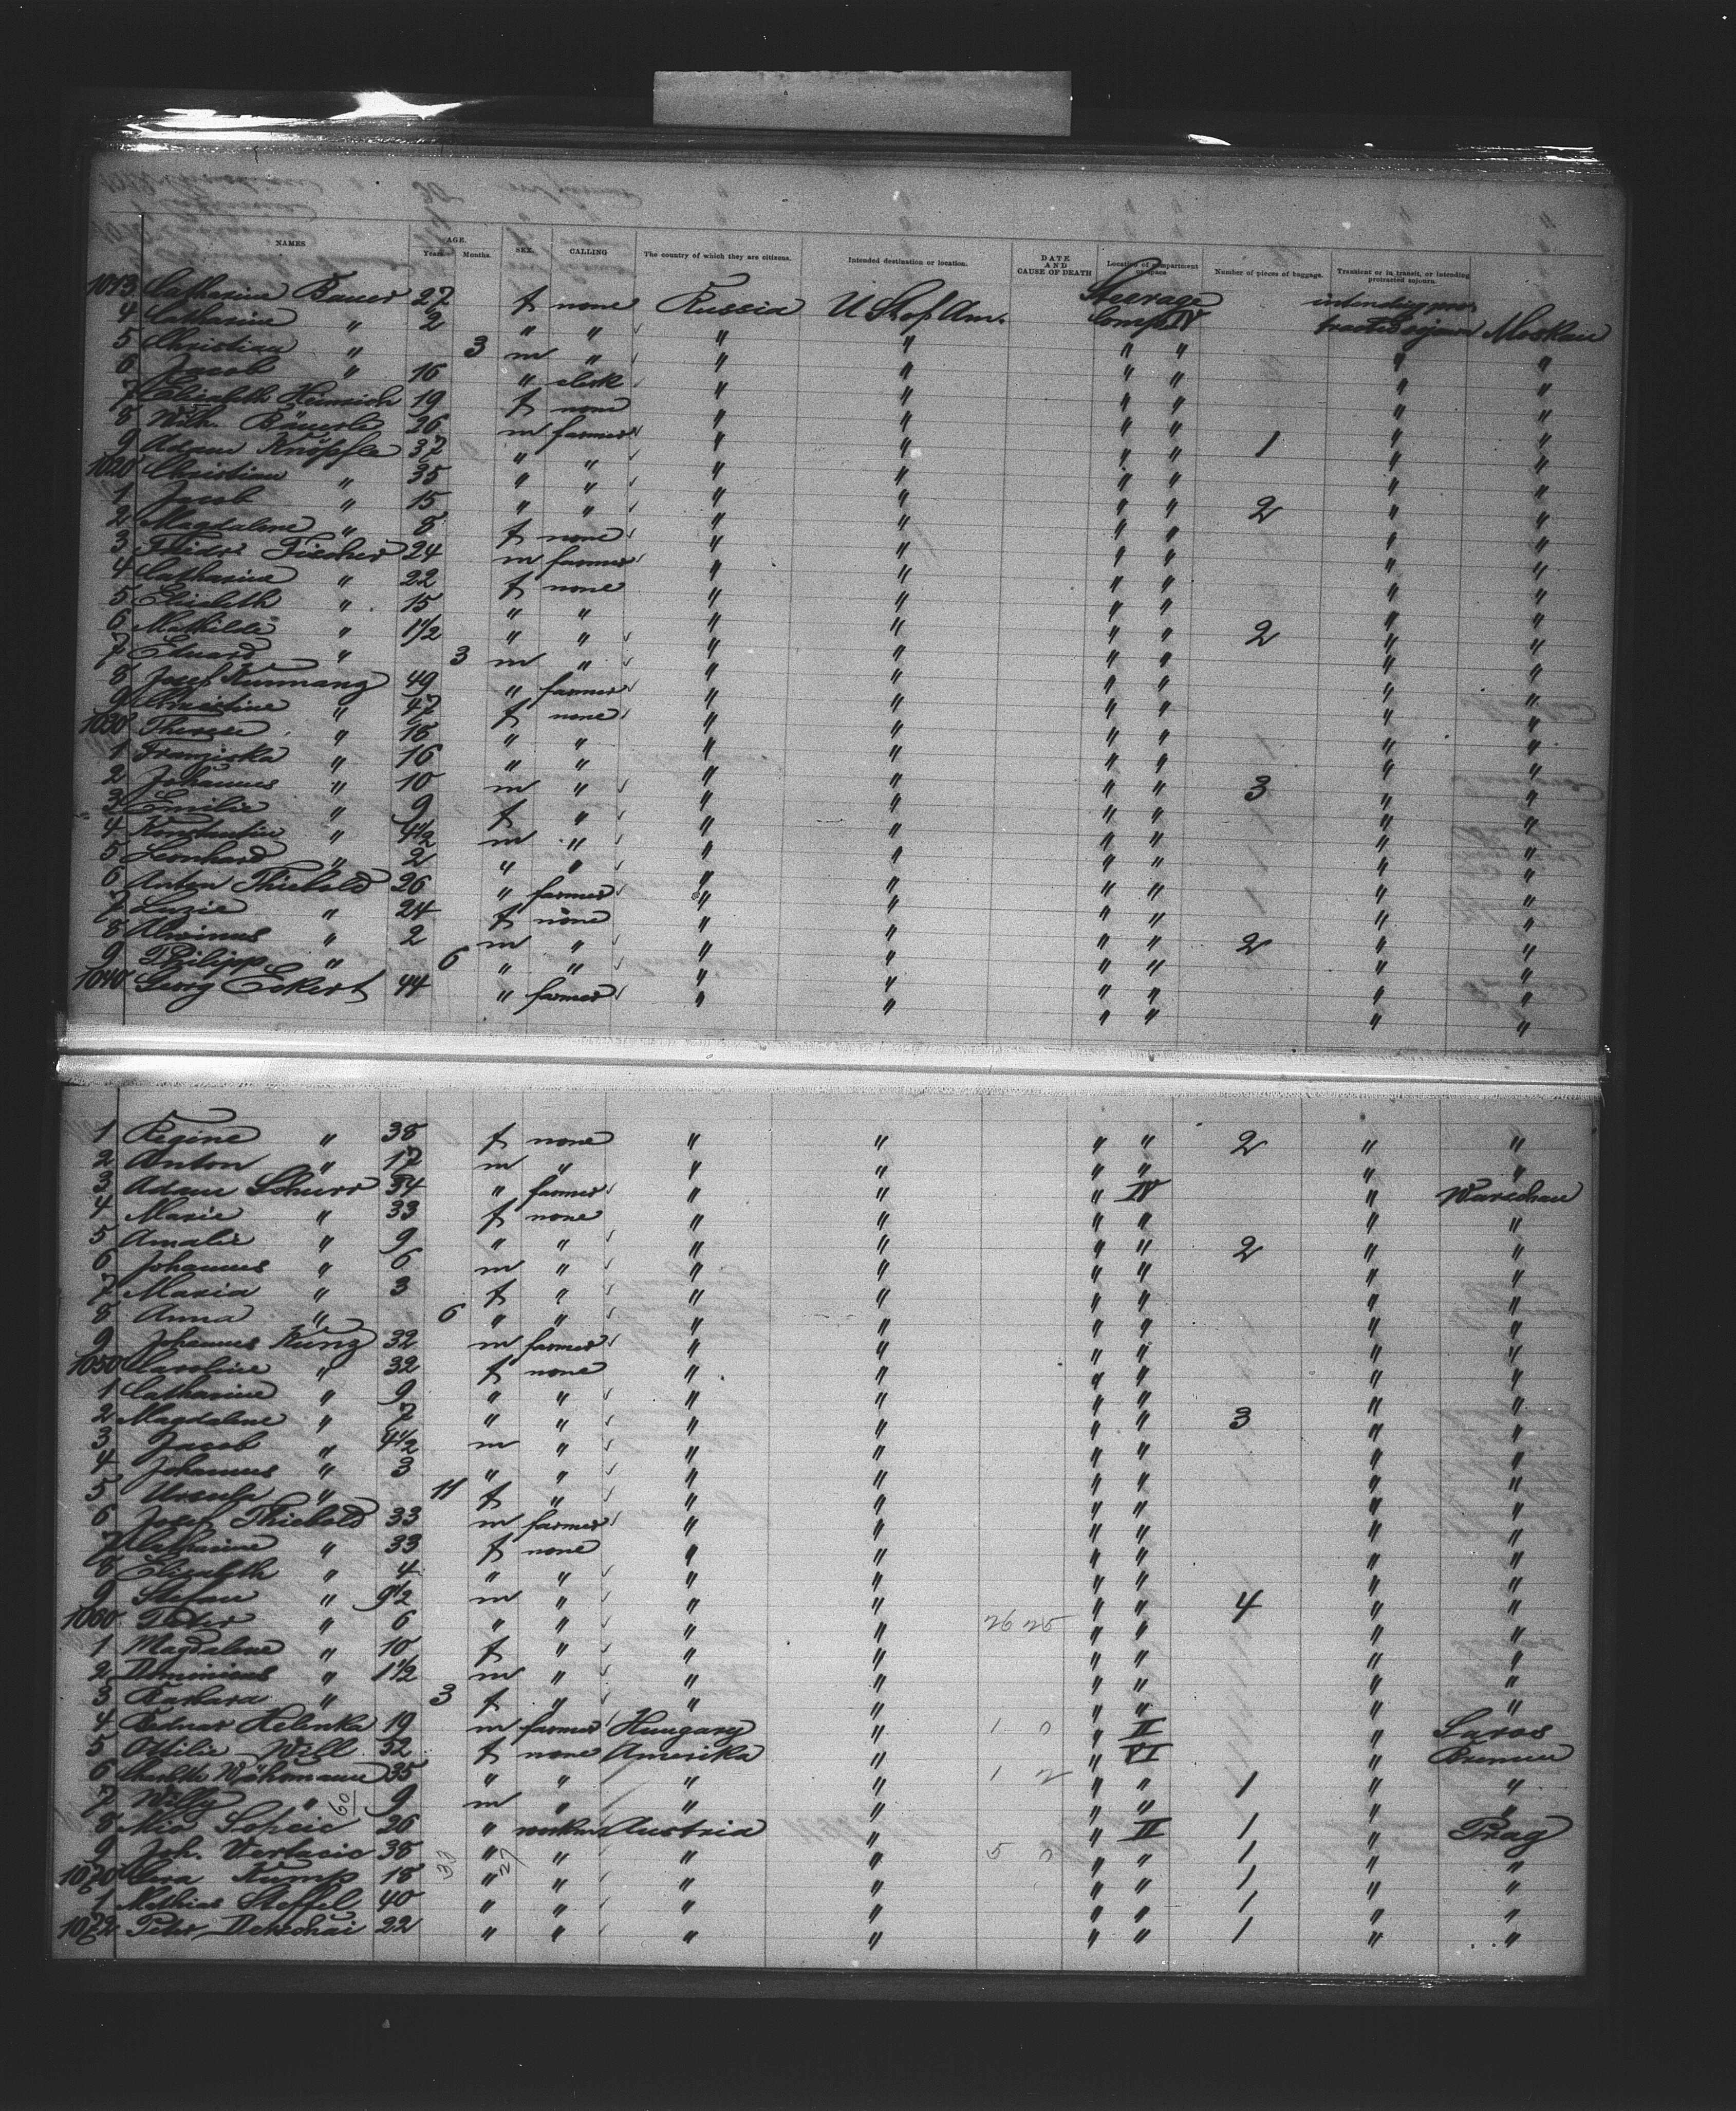 NAMES AGE. Years. Months. SEX. CALLING The country of which they are citizens. Intended destination or location. DATE AND CAUSE OF DEATH Location of compartment or space Number of pieces of baggage. Transient or in transit, or intending protracted sojourn.
1013 Catharina Bauer 27 f none Russia U St of Am. Steerage Comp IV intending protracted sojourn Moskau
4 Catharina " 2 " " " " " " " "
5 Christian " 3 m " " " " " " "
6 Jacob " 16 " clerk " " " " " "
7 Elisabeth Heinrich 19 f none " " " " " "
8 Wilh. Bäuerle 26 m farmer " " " " 1 " "
9 Adam Knöpfle 37 " " " " " " " "
1020 Christian " 35 " " " " " " " "
1 Jacob " 15 " " " " " " 2 " "
2 Magdalene " 8 f none " " " " " "
3 Friedr Fischer 24 m farmer " " " " " "
4 Catharina " 22 f none " " " " " "
5 Elisabeth " 15 " " " " " " " "
6 Mathilde " 1 1/2 " " " " " " 2 " "
7 Eduard " 3 m " " " " " " "
8 Josef 49 " farmer " " " " " "
9 Christine " 47 f none " " " " " "
1030 Therese " 18 " " " " " " " "
1 Franziska " 16 " " " " " " " "
2 Johannes " 10 m " " " " " 3 " "
3 Emilie " 9 f " " " " " " "
4 Konstantin " 4 1/2 m " " " " " " "
5 Leonhard " 2 " " " " " " " "
6 Anton Thiebold 26 " farmer " " " " " "
7 Luzie " 24 f none " " " " " "
8 Alwinus " 2 m " " " " " 2 " "
9 Philipp " 6 " " " " " " " "
1040 Georg Eckert 44 " farmer " " " " " "
1 Regine " 38 f none " " " " 2 " "
2 Anton " 17 m " " " " " " "
3 Adam Schurr 34 " farmer " " " IV " Warschau
4 Marie " 33 f none " " " " " "
5 Amalie " 9 " " " " " " 2 " "
6 Johannes " 6 m " " " " " " "
7 Maria " 3 f " " " " " " "
8 Anna " 6 " " " " " " " "
9 Johannes Kunz 32 m farmer " " " " " "
1050 Caroline " 32 f none " " " " " "
1 Catharine " 9 " " " " " " " "
2 Magdalene " 7 " " " " " " 3 " "
3 Jacob " 4 1/2 m " " " " " " "
4 Johannes " 3 " " " " " " " "
5 Ursula " 11 f " " " " " " "
6 Josef Thiebold 33 m farmer " " " " " "
7 Catharine " 33 f none " " " " " "
8 Elisabeth " 4 " " " " " " " "
9 Stefan " 9 1/2 m " " " " " 4 " "
1060 Peter " 6 " " " " 26 25 " " " "
1 Magdalene " 10 f " " " " " " "
2 Dominicus " 1 1/2 m " " " " " " "
3 Barbara " 3 f " " " " " " "
4 Bednar Helenka 19 m farmer Hungary " 1 0 " II " Saros
5 Ottilie Will 52 f none Amerika " " VI " Bremen
6 Charlotte Wöhrmann 35 " " " " 1 2 " " 1 " "
7 Willy " 60 9 m " " " " " " "
8 26 " workm Austria " " II 1 " Prag
9 Joh. 38 33 " 27 " " " 5 0 " " 1 " "
1070 Kump 18 " " " " " " 1 " "
1 Mathias Steffel 40 " " " " " " 1 " "
1072 Peter 22 " " " " " " 1 " "